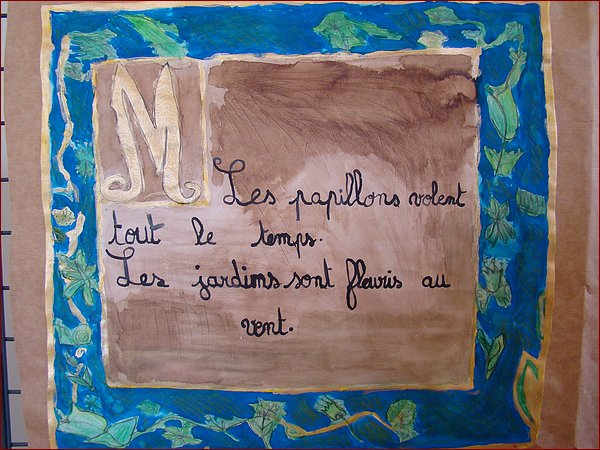 M
Les papillons volent
tout le temps.
Les jardins sont fleuris au
vent.